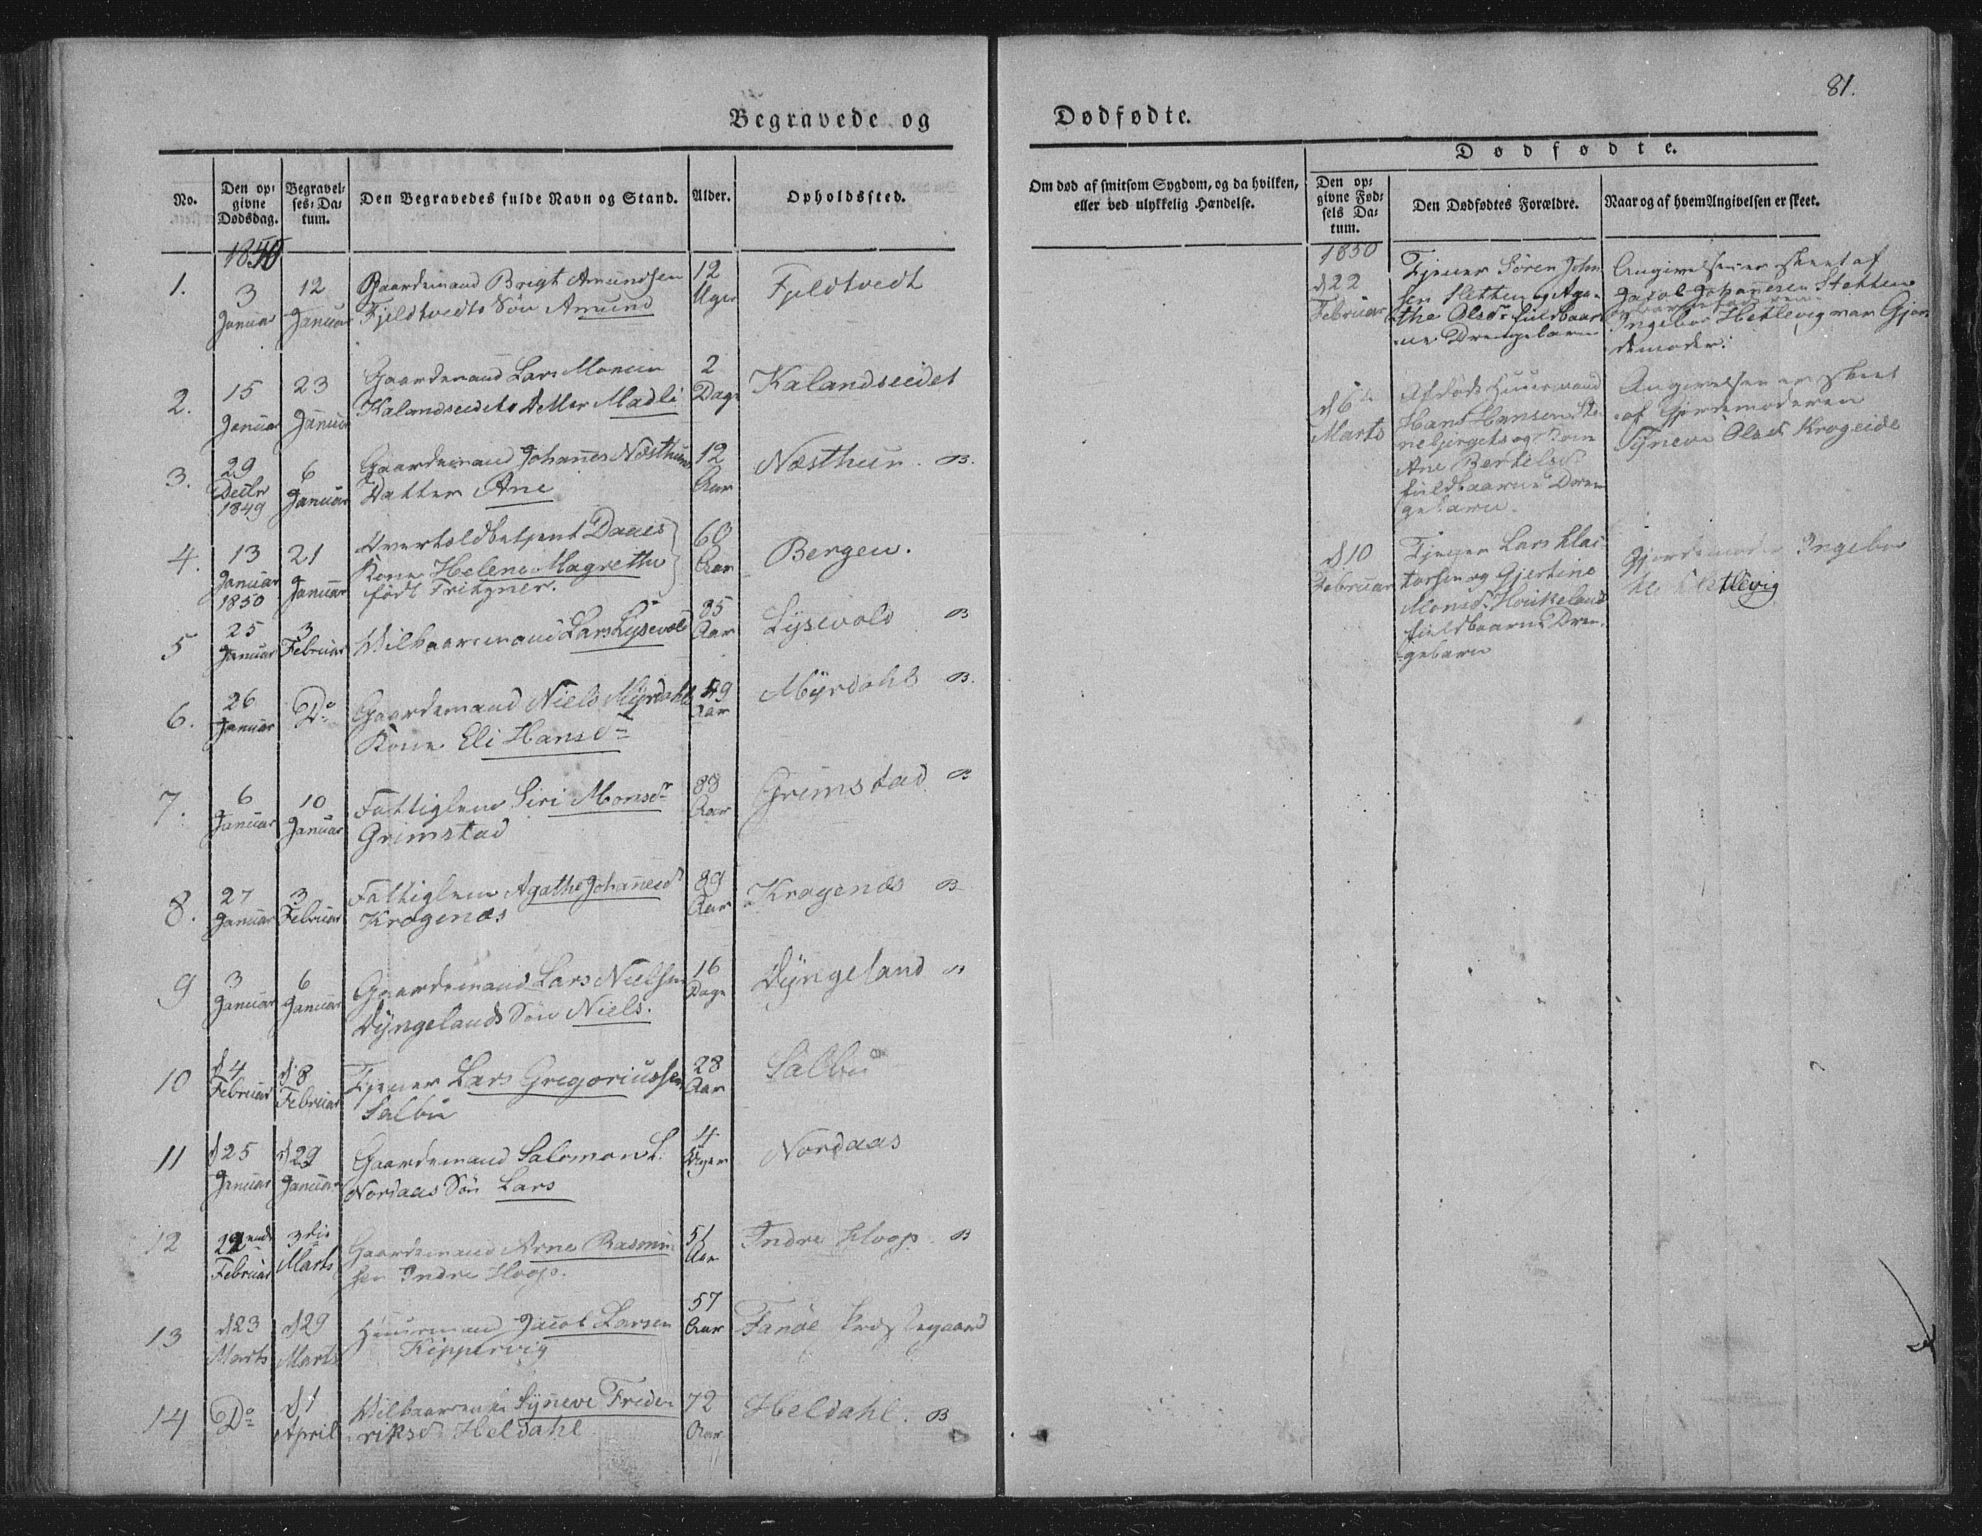 81.
Begravede og Dødfødte.
No.
Den op-
givne
Dødsdag.
Begravel-
ses-Da-
tum.
Den Begravedes fulde Navn og Stand.
Alder.
Opholdssted.
Om død af smitsom Sygdom, og da hvilken,
eller ved ulykkelig Hændelse.
Dødfødte.
Den op-
givne Fød-
sels Da-
tum.
Den Dødfødtes Forældre.
Naar og af hvem Angivelsen er skeet.
1850
1.
3
Januar
12
Januar
Gaardemand Brigt Amundsen
Fjeldtvedts Søn Amund
12
Uger
Fjeldtvedt
2.
15
Januar
23
Januar
Gaardemand Lars Monsen
Kalandseidets Datter Madli
2
Dage
Kalandseidet
3.
29
Decbr
1849
6
Januar
Gaardemand Johannes Næsthuus
Datter Ane
12
Aar
Næsthun. B.
4.
13
Januar
1850
21
Januar
Overtoldbetjent Daaes
Kone Helene Magrethe
født Fritzner.
60
Aar
Bergen.
5
25
Januar
3
Februar
Vilkaarsmand Lars Lysevold
85
Aar
Lysevold B
6.
26
Januar
Do
Gaardemand Niels Myrdahls
Kone Eli Hansdr
49
Aar
Myrdahl B.
7.
6
Januar
10
Januar
Fattiglem Siri Monsdr
Grimstad
88
Aar
Grimstad B
8.
27
Januar
3
Februar
Fattiglem Agathe Johannesdr
Krogenæs
89
Aar
Krogenæs B
9
3
Januar
6
Januar
Gaardemand Lars Nielsen
Dyngelands Søn Niels.
16
Dage
Dyngeland B
10
d 4
Februar
d 8
Februar
Tjener Lars Gregoriussen
Salbu
28
Aar
Salbu
11
d 25
Januar
d 29
Januar
Gaardemand Salomon L.
Nordaas Søn Lars
4
Uger
Nordaas
12
22ende
Februar
3die
Marts
Gaardemand Arne Rasmus
sen Indre Hoop.
51
Aar
Indre Hoop. B
13
d 23
Marts
d 29
Marts
Huusmand Jacob Larsen
Kippervig
57
Aar
Fanøe Præstegaard
14
Do
d 1
April
Vilkaarsenke Syneve Frede
riksdr Heldahl
72
Aar
Heldahl. B
1850
d 22
Februar
Tjener Søren John
sen Sletten og Aga-
the Olsdr fuldbaar
ne Drengebarn
Angivelsen er skeet af
Jacob Johannesen Stetten
Ingebor Hetlevig var Gjor
demoder.
d 6te
Marts
Afdøde Huusmand
Hans Hansen Ste-
nebjergets og Kone
Ane Bertelsdr
fuldbaarne Dren
gebarn.
Angivelsen er skeet
af Gjordemoderen
Syneve Olsdr Krogeide
d 10
Februar
Tjener Lars Klas
torsen og Gjertine
Monsdr Houkeland
fuldbaarne Dren-
gebarn
Gjordemoder Ingebor
Hetlevig